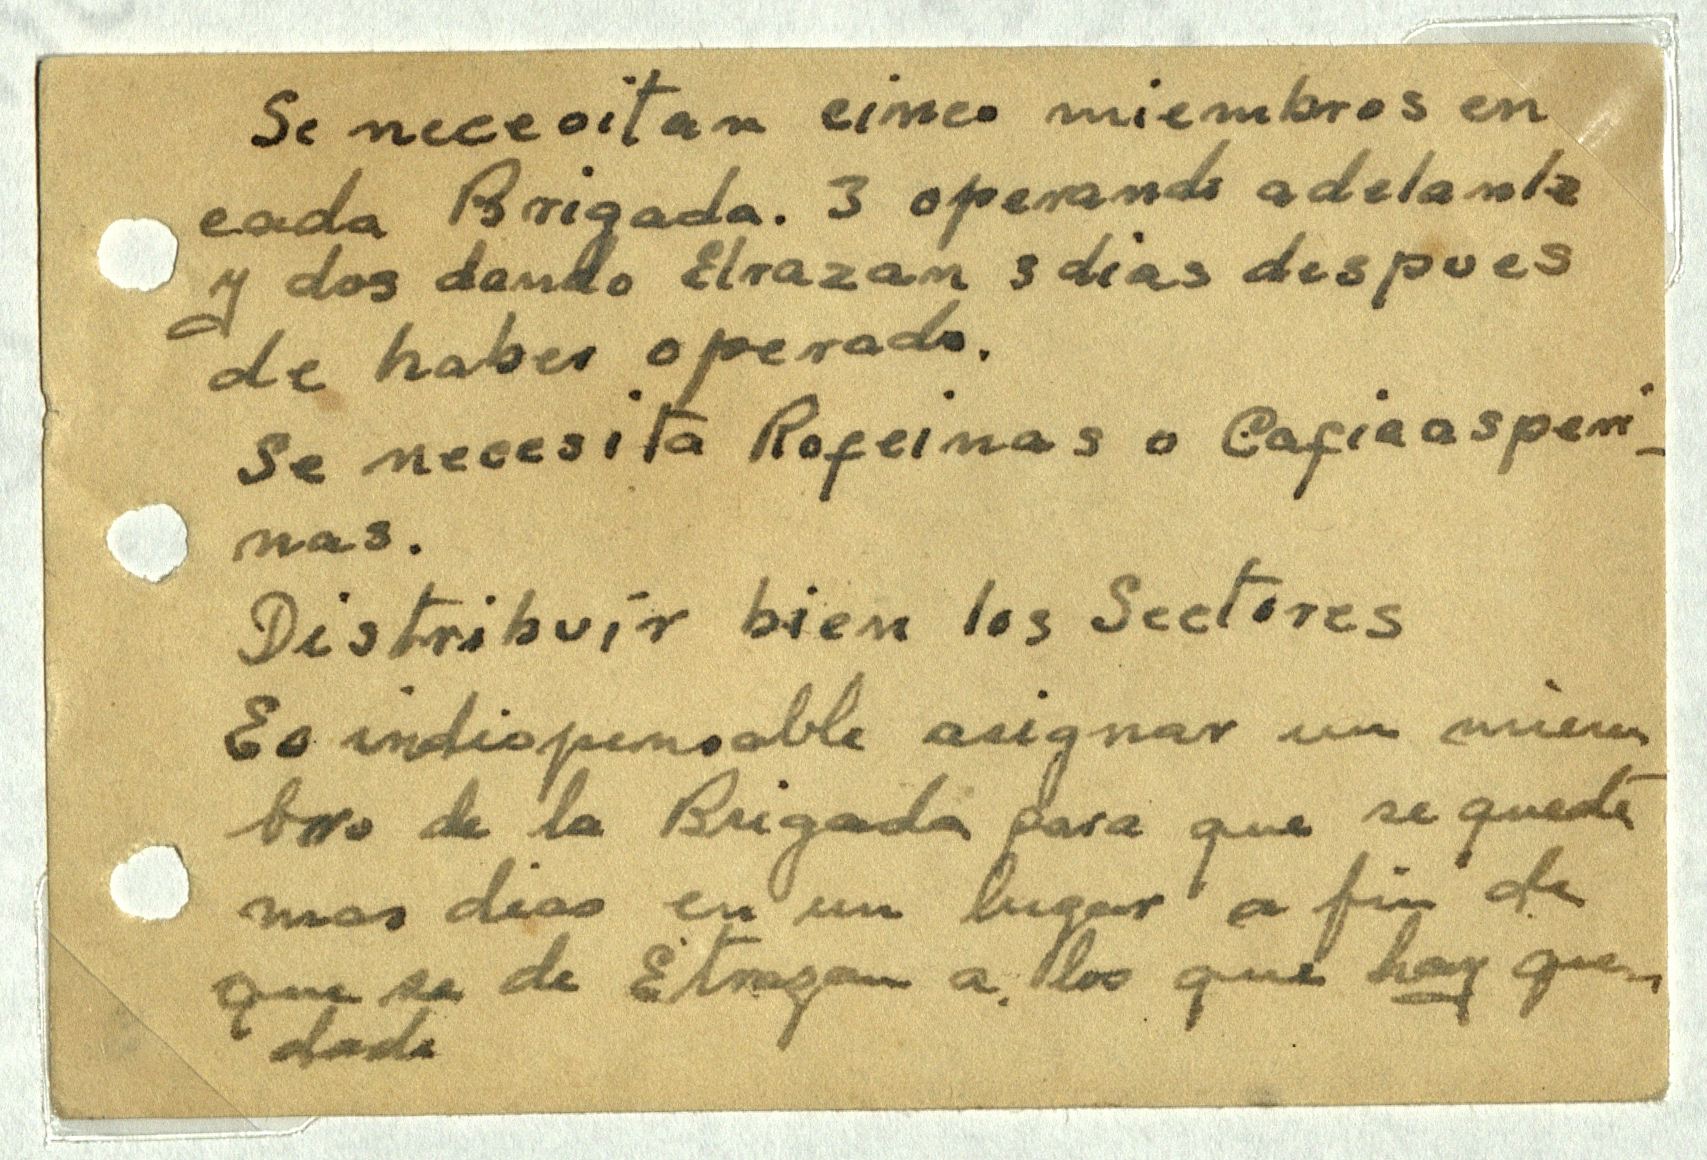 Se necesitan cinco miembros en
cada Brigada. 3 operando adelante
y dos dando Etrazan 3 dias despues
de haber operado.
Se necesita Rofeinas o Cafiaasperi-
nas.
Distribuír bien los Sectores
Es indispensable asignar un miem
bro de la Brigada para que se quede
mas dias en un lugar a fin de
que se de Etrazan a los que hay que-
dado